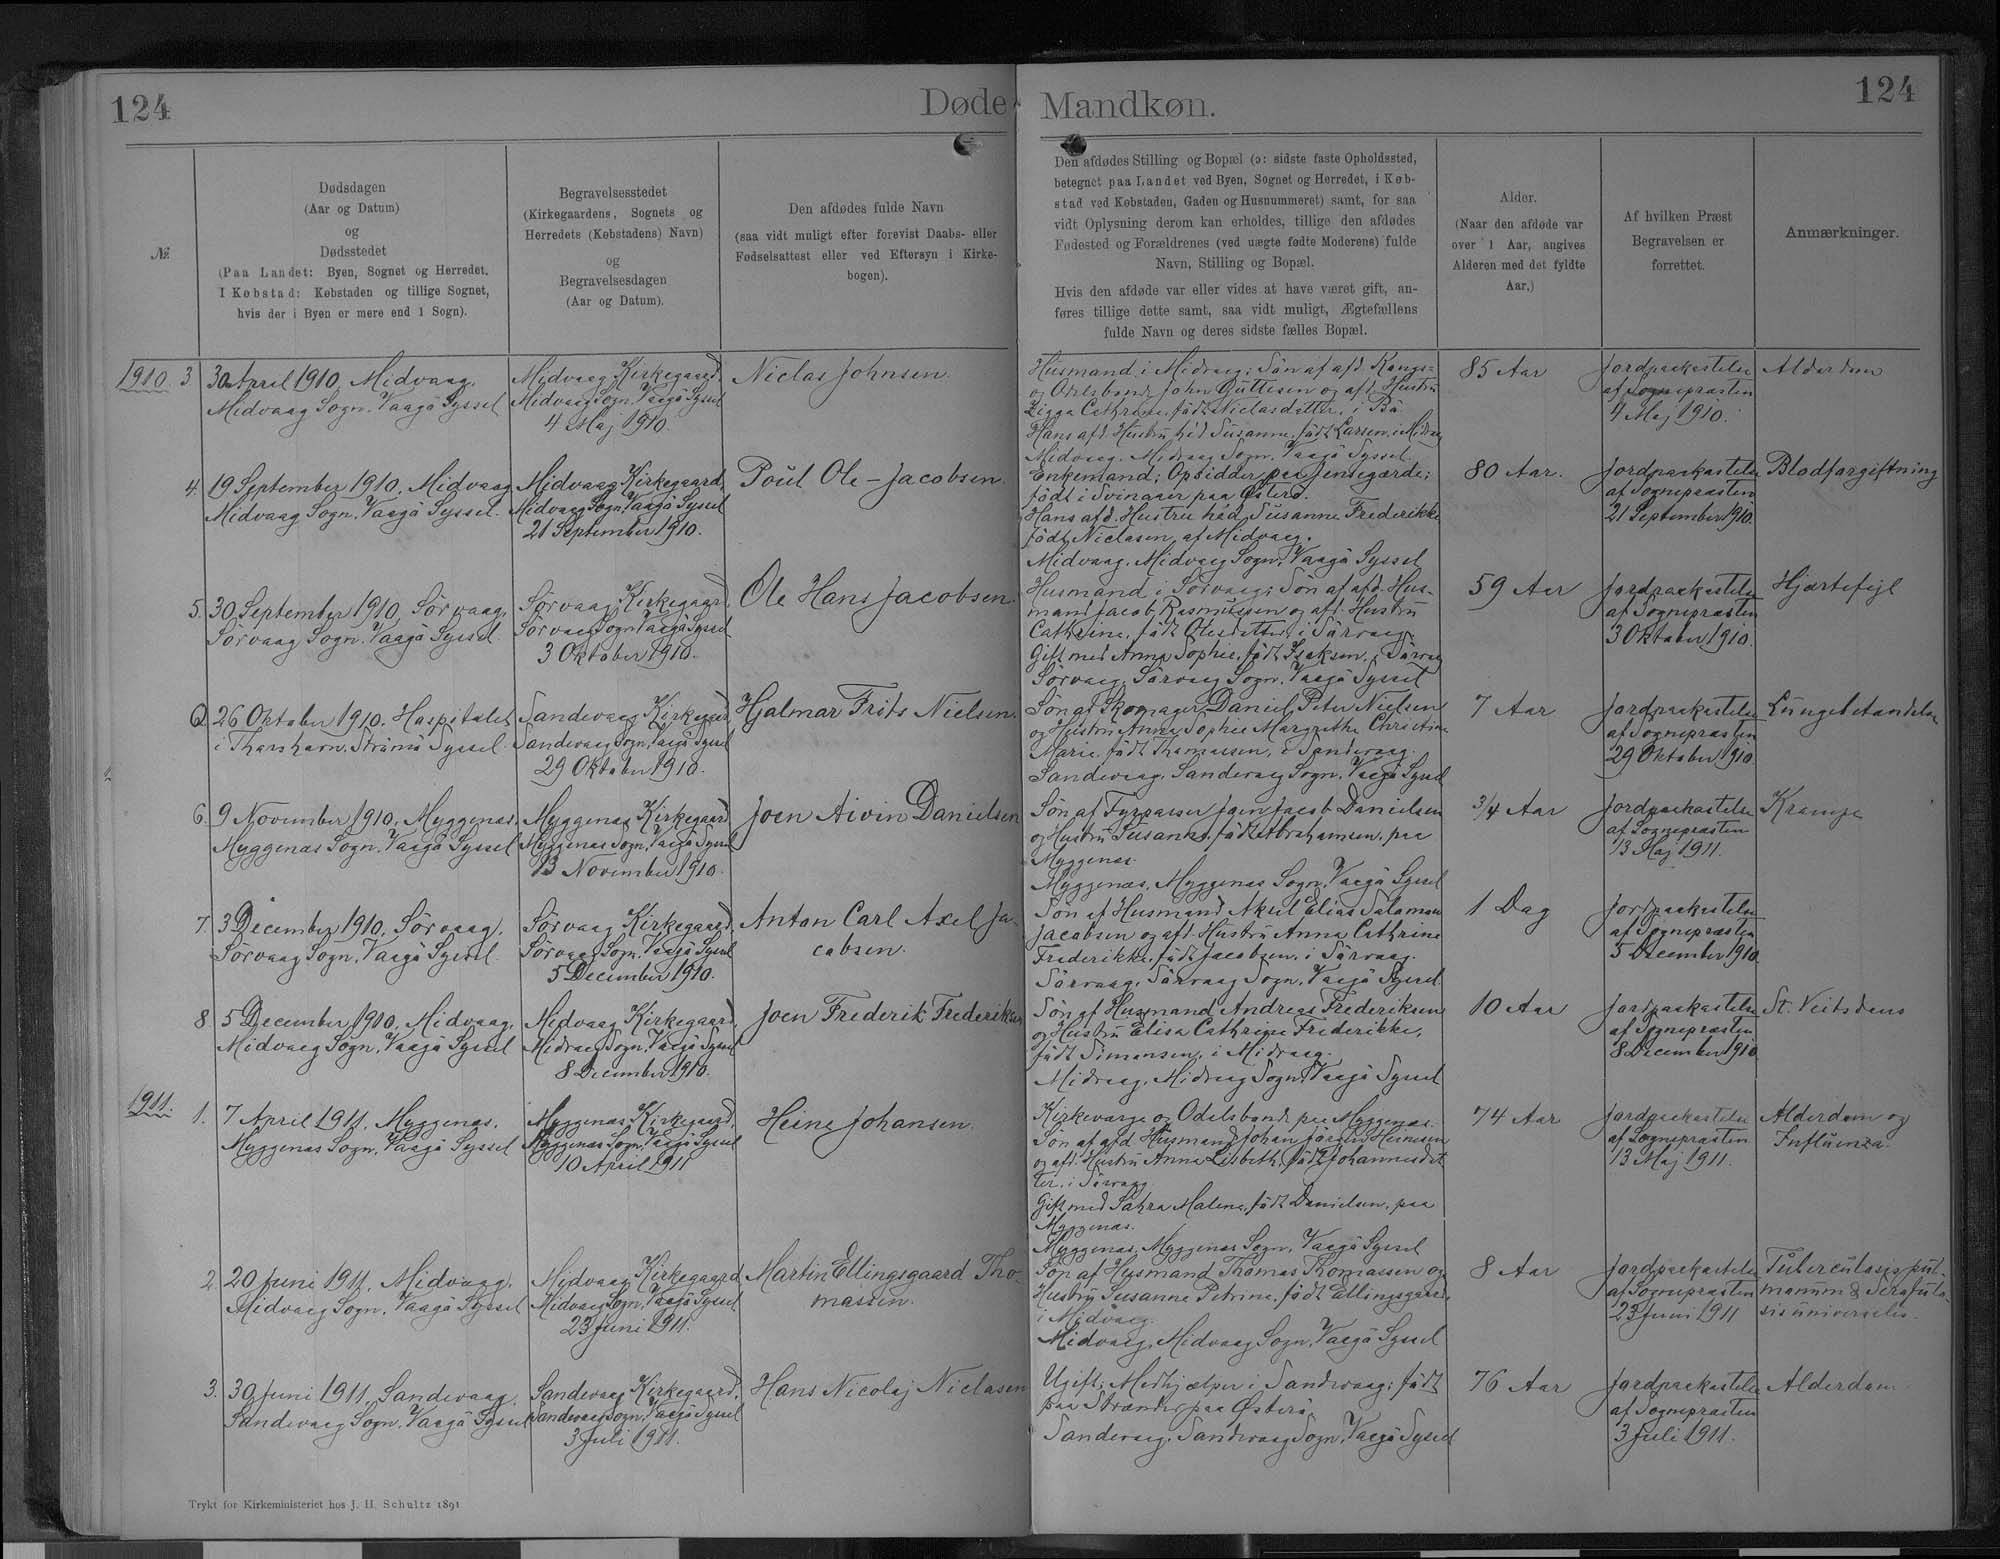 124
Døde
Mandkøn.
124
№
Dødsdagen
(Aar og Datum)
og
Dødsstedet
(Paa Landet: Byen, Sognet og Herredet.
I Købstad: Købstaden og tillige Sognet,
hvis der i Byen er mere end 1 Sogn).
Begravelsesstedet
(Kirkegaardens, Sognets og
Herredets (Købstadens) Navn)
og
Begravelsesdagen
(Aar og Datum).
Den afdødes fulde Navn
(saa vidt muligt efter forevist Daabs- eller
Fødselsattest eller ved Eftersyn i Kirke-
bogen).
Den afdødes Stilling og Bopæl (ɔ: sidste faste Opholdssted,
betegnet paa Landet ved Byen, Sognet og Herredet, i Køb-
stad ved Købstaden, Gaden og Husnummeret) samt, for saa
vidt Oplysning derom kan erholdes, tillige den afdødes
Fødested og Forældrenes (ved uægte fødte Moderens) fulde
Navn, Stilling og Bopæl.
Hvis den afdøde var eller vides at have været gift, an-
føres tillige dette samt, saa vidt muligt, Ægtefællens
fulde Navn og deres sidste fælles Bopæl.
Alder.
(Naar den afdøde var
over 1 Aar, angives
Alderen med det fyldte
Aar.)
Af hvilken Præst
Begravelsen er
forrettet.
Anmærkninger.
1910. 3. 30 April 1910, Midvaag.
Midvaag Sogn, Vaagö Syssel
Midvaag Kirkegaard,
Midvaag Sogn, Vaagö Syssel
4 Maj 1910.
Niclas Johnsen.
Husmand i Midvaag; Sön af afd. Kongs-
og Odelsbonde John Guttesen og afd. Hustrü
Zigga Cathrine, födt Niclasdatter, i Bö.
Hans afd. Hustrü hed Susanne, födt Larsen, i Midvaag
Midvaag, Midvaag Sogn, Vaagö Syssel.
85 Aar
Jordpaakastelse
af Sognepræsten
4 Maj 1910.
Alderdom
4. 19 September 1910, Midvaag
Midvaag Sogn, Vaagö Syssel.
Midvaag Kirkegaard,
Midvaag Sogn, Vaagö Syssel
21 September 1910.
Poül Ole-Jacobsen.
Enkemand; Opsidder paa Jensegærde;
födt i Svinaaer paa Østerö.
Hans afd. Hustru hed Susanne Frederikke
födt Niclasen, af Midvaag.
Midvaag, Midvaag Sogn, Vaagö Syssel
80 Aar.
Jordpaakastelse
af Sognepræsten
21 September 1910.
Blodforgiftning
5. 30 September 1910, Sörvaag,
Sörvaag Sogn, Vaagö Syssel.
Sörvaag Kirkegaard,
Sörvaag Sogn, Vaagö Syssel
3 Oktober 1910.
Ole Hans Jacobsen.
Husmand i Sörvaag; Sön af afd. Hus-
mand Jacob Rasmussen og afd. Hustrü
Cathrine, födt Olesdatter, i Sörvaag.
Gift med Anna Sophie, födt Isaksen, i Sörvaag
Sörvaag, Sörvaag Sogn, Vaagö Syssel
59 Aar
Jordpaakastelse
af Sognepræsten
3 Oktober 1910.
Hjærtefejl
26 Oktober 1910, Hospitalet
i Thorshavn, Strömö Syssel.
Sandevaag Kirkegaard
Sandevaag Sogn, Vaagö Syssel
29 Oktober 1910.
Hjalmar Frits Nielsen.
Sön af Skomager Daniel Peter Nielsen
og Hustrü Anna Sophie Margrethe Christine
Marie, födt Thomassen, i Sandevaag.
Sandevaag, Sandevaag Sogn, Vaagö Syssel
7 Aar
Jordpaakastelse
af Sognepræsten
29 Oktober 1910
Lüngebetændelse
6. 9 November 1910, Myggenæs,
Myggenæs Sogn, Vaagö Syssel
Myggenæs Kirkegaard
Myggenæs Sogn, Vaagö Syssel
13 November 1910.
Joen Aivin Danielsen
Sön af Fyrpasser Joen Jacob Danielsen
og Hustrü Susanne, födt Abrahamsen, paa
Myggenæs.
Myggenæs, Myggenæs Sogn, Vaagö Syssel
3/4 Aar
Jordpaakastelse
af Sognepræsten
13 Maj 1911.
Krampe
7. 3 December 1910, Sörvaag,
Sörvaag Sogn, Vaagö Syssel.
Sörvaag Kirkegaard,
Sörvaag Sogn, Vaagö Syssel
5 December 1910.
Anton Carl Axel Ja-
cobsen.
Sön af Husmand Aksel Elias Salomon
Jacobsen og afd. Hustrü Anna Cathrine
Frederikke, födt Jacobsen, i Sörvaag.
Sörvaag, Sörvaag Sogn, Vaagö Syssel.
1 Dag
Jordpaakastelse
af Sognepræsten
5 December 1910
8. 5 December 1910, Midvaag,
Midvaag Sogn, Vaagö Syssel
Midvaag Kirkegaard,
Midvaag Sogn, Vaagö Syssel
8 December 1910.
Joen Frederik Frederiksen
Sön af Husmand Andreas Frederiksen
og Hustrü Elisa Cathrine Frederikke,
födt Simonsen, i Midvaag.
Midvaag, Midvaag Sogn, Vaagö Syssel
10 Aar
Jordpaakastelse
af Sognepræsten
8 December 1910
St. Veitsdans
1911. 1. 7 April 1911, Myggenæs,
Myggenæs Sogn, Vaagö Syssel
Myggenæs Kirkegaard,
Myggenæs Sogn, Vaagö Syssel
10 April 1911
Heine Johansen.
Kirkeværge og Odelsbonde paa Myggenæs.
Sön af afd. Husmand Johan Jörgen Heinesen
og afd. Hustrü Anna Lisbeth, födt Johannesdat
ter, i Sörvaag.
Gift med Sahra Malene, födt Danielsen, paa
Myggenæs.
Myggenæs, Myggenæs Sogn, Vaagö Syssel
74 Aar
Jordpaakastelse
af Sognepræsten
13 Maj 1911.
Alderdom og
Inflüenza.
2. 20 Juni 1911, Midvaag,
Midvaag Sogn, Vaagö Syssel
Midvaag Kirkegaard
Midvaag Sogn, Vaagö Syssel
23 Juni 1911.
Martin Ellingsgaard Tho-
massen.
Sön af Husmand Thomas Thomassen og
Hustrü Susanne Petrine, födt Ellingsgaard,
i Midvaag.
Midvaag, Midvaag Sogn, Vaagö Syssel
8 Aar
Jordpaakastelse
af Sognepræsten
23 Juni 1911
Tüberculosis pül-
monum & Scrofulo-
sis üniversalis.
3. 30 Juni 1911, Sandevaag,
Sandevaag Sogn, Vaagö Syssel
Sandevaag Kirkegaard,
Sandevaag Sogn, Vaagö Syssel
3 Juli 1911.
Hans Nicolaj Niclasen
Ugift; Medhjælper i Sandevaag; födt
paa Strænder paa Østerö.
Sandevaag, Sandevaag Sogn, Vaagö Syssel
76 Aar
Jordpaakastelse
af Sognepræsten
3 Juli 1911.
Alderdom
Trykt for Kirkeministeriet hos J. H. Schultz 1891